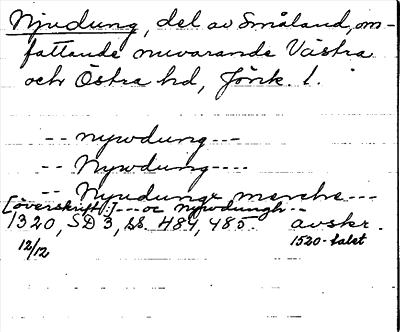 Njudung, del av Småland, om-
fattande nuvarande Västra
och Östra hd, Jönk. l.
-- nywdung---
-- Nywdung----
-- Nyudungx merche---
[överskrift:]---oc Nywdungh--
1320, SD 3, ss. 484, 485. avskr.
12/12 1520-talet